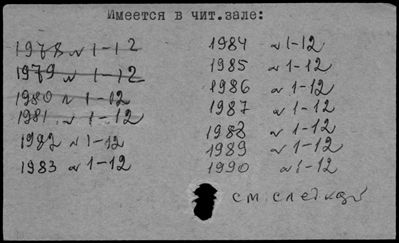 Имеется в чит.зале:
1978 № 1-12
1979 № 1-12
1980 № 1-12
1981 № 1-12
1982 № 1-12
1983 № 1-12
1984 № 1-12
1985 № 1-12
1986 № 1-12
1987 № 1-12
1988 № 1-12
1989 № 1-12
1990 № 1-12
см.след.кар